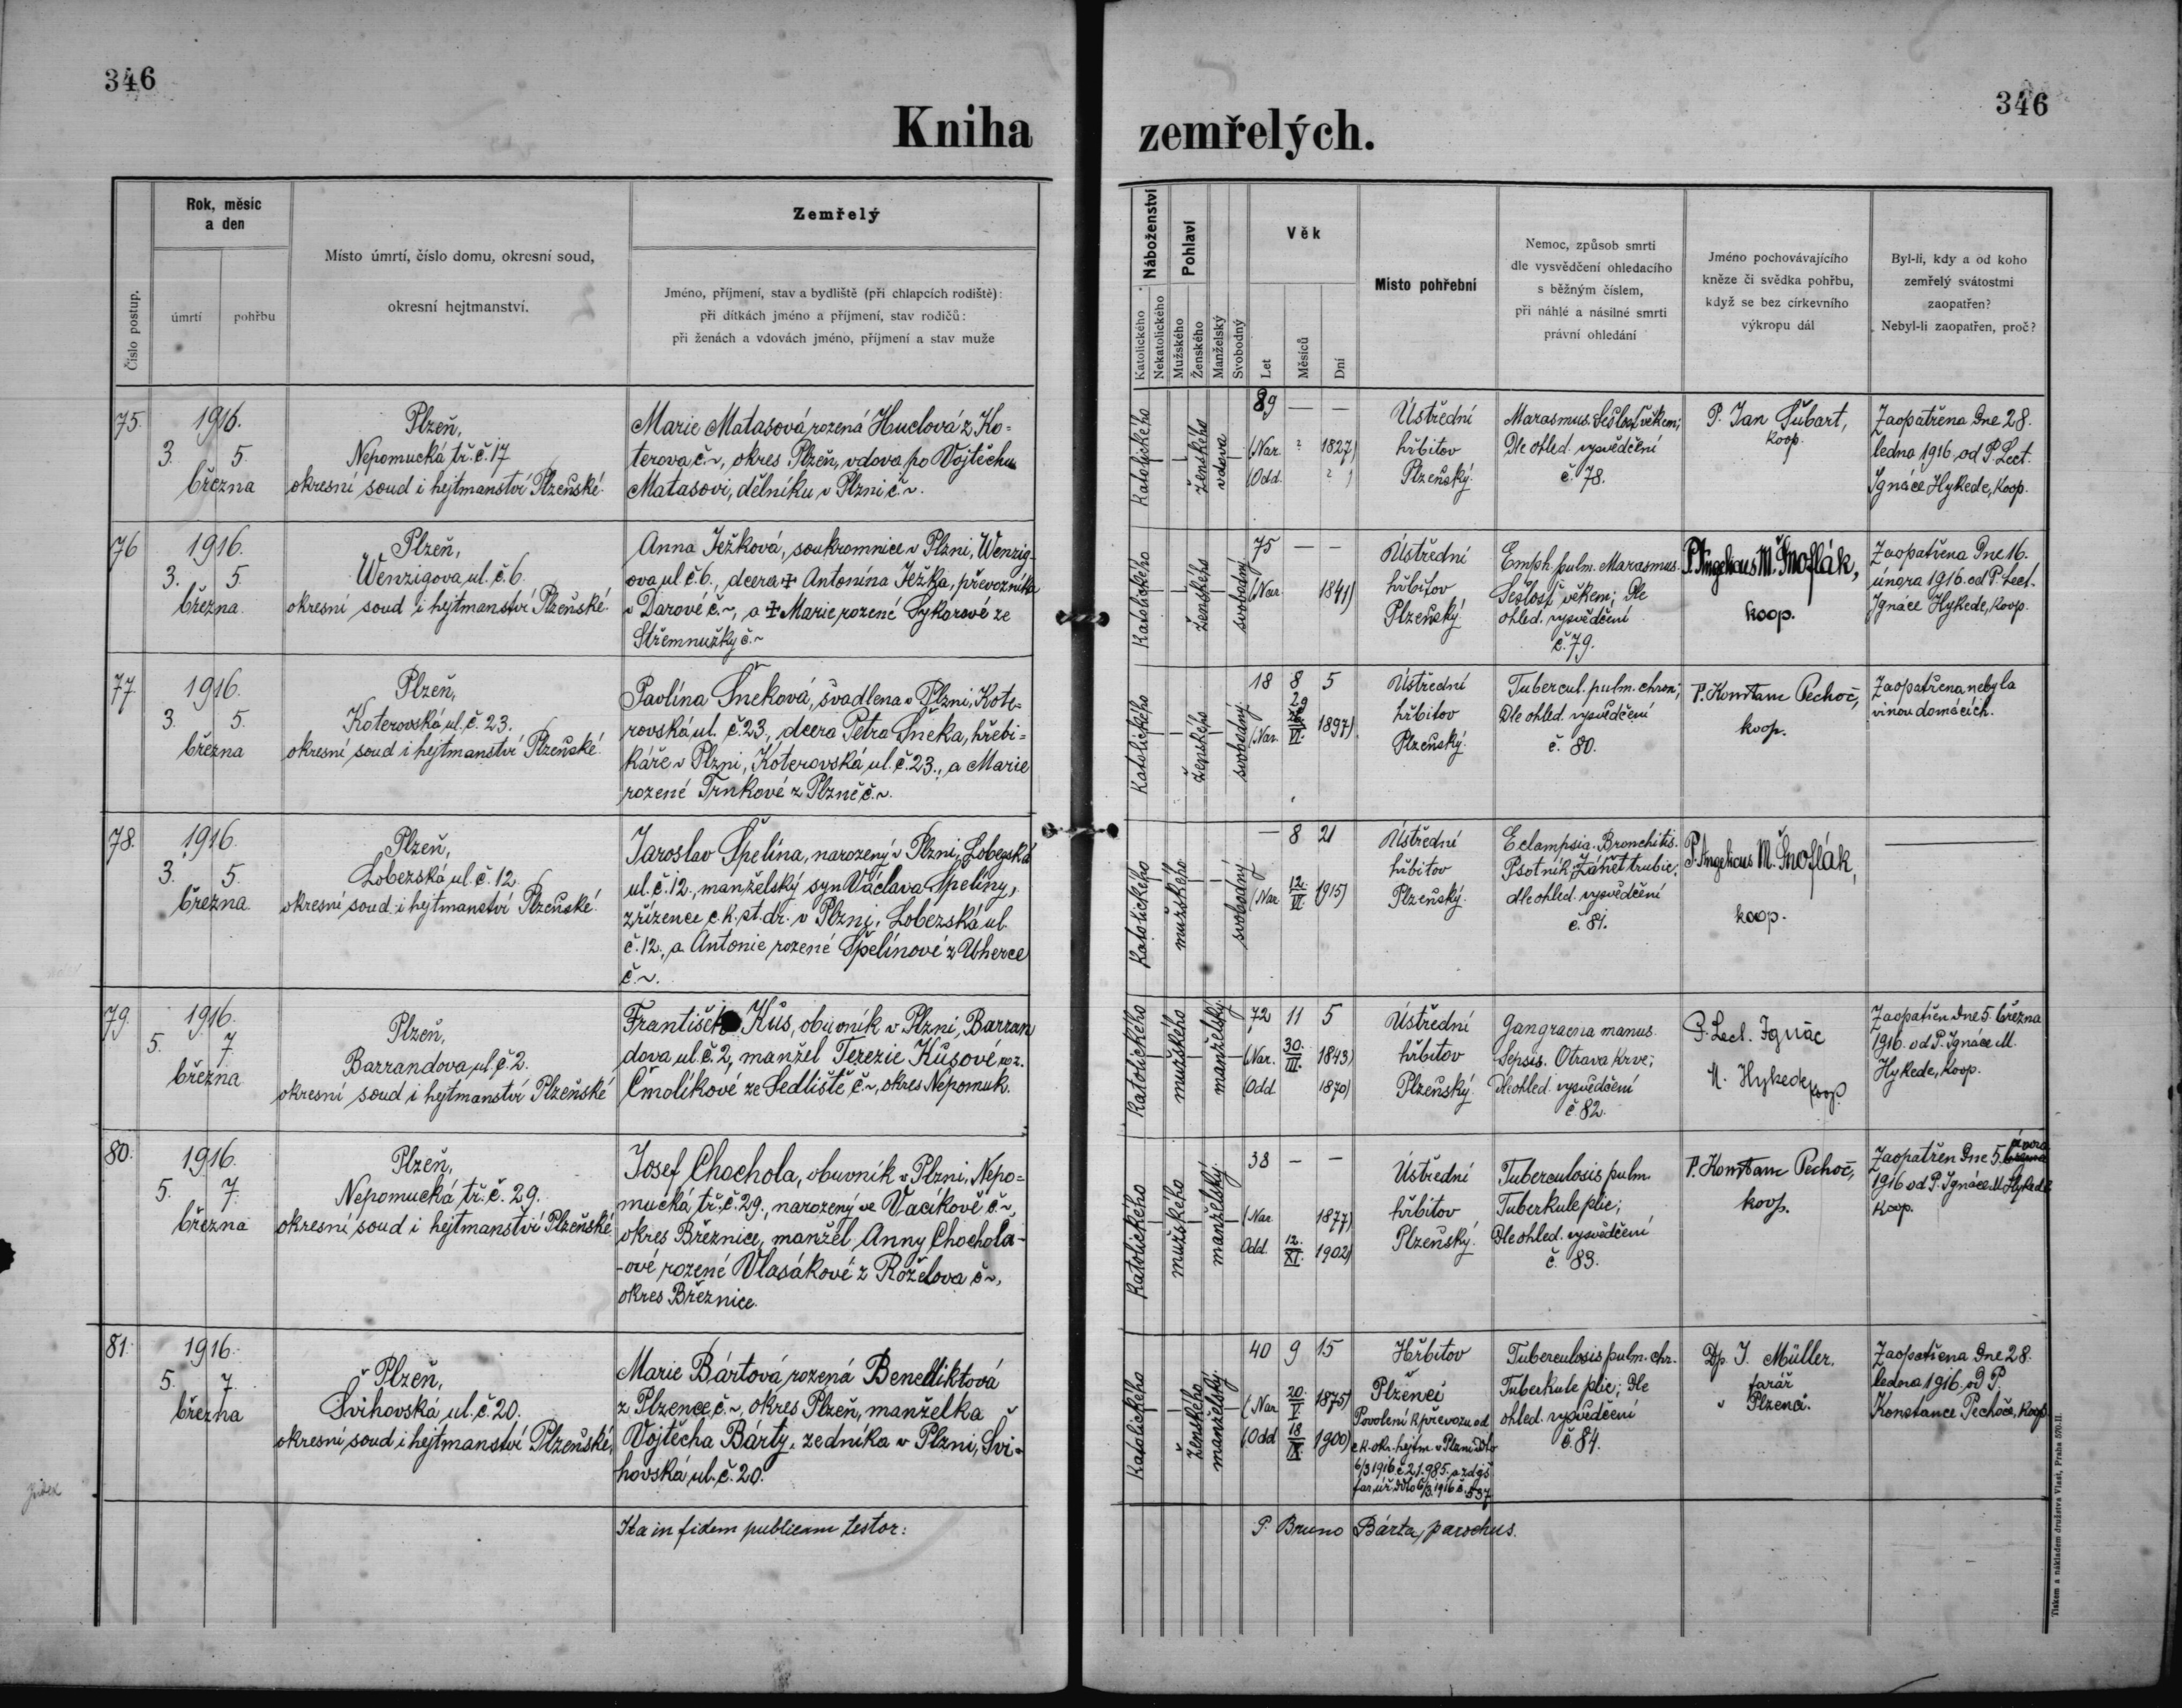 346
346
Kniha zemřelých.
Číslo postup.
Rok, měsíc
a den
úmrtí
pohřbu
Místo úmrtí, číslo domu, okresní soud,
okresní hejtmanství.
Zemřelý
Jméno, příjmení, stav a bydliště (při chlapcích rodiště):
při dítkách jméno a příjmení, stav rodičů:
při ženách a vdovách jméno, příjmení a stav muže
Náboženství
Katolického
Nekatolického
Pohlaví
Mužského
Ženského
Manželský
Svobodný
Věk
Let
Měsíců
Dní
Místo pohřební
Nemoc, způsob smrti
dle vysvědčení ohledacího
s běžným číslem,
při náhlé a násilné smrti
právní ohledání
Jméno pochovávajícího
kněze či svědka pohřbu,
když se bez církevního
výkropu dál
Byl-li, kdy a od koho
zemřelý svátostmi
zaopatřen?
Nebyl-li zaopatřen, proč?
75.
1916.
3. 5.
března
Plzeň,
Nepomucká tř. č. 17
okresní soud i hejtmanství Plzeňské.
Marie Matasová rozená Huclová z Ko=
terova č. ~, okres Plzeň, vdova po Vojtěchu
Matasovi, dělníku v Plzni č. ~.
Katolického
ženského
vdova
89 — —
(Nar. ? 1827)
(Odd. ? )
Ústřední
hřbitov
Plzeňský.
Marasmus. Sešlost věkem;
Dle ohled. vysvědčení
č. 78.
P. Jan Šubart,
koop.
Zaopatřena dne 28.
ledna 1916 od P. Lect.
Ignáce Hykede, koop.
76
1916.
3. 5.
března.
Plzeň,
Wenzigova ul. č. 6.
okresní soud i hejtmanství Plzeňské.
Anna Ježková, soukromnice v Plzni, Wenzig-
ova ul. č. 6., dcera † Antonína Ježka, převozníka
v Darové č. ~, a † Marie rozené Sýkorové ze
Střemnužky č. ~
Katolického
ženského
svobodný
75 — —
(Nar. 1841)
Ústřední
hřbitov
Plzeňský.
Emph. pulm. Marasmus.
Sešlost věkem; Dle
ohled. vysvědčení
č. 79.
P. Angelicus M. Šnoflák,
koop.
Zaopatřena dne 16.
února 1916. od P. Lect.
Ignáce Hykede, koop.
77.
1916.
3. 5.
března
Plzeň,
Koterovská ul. č. 23.
okresní soud i hejtmanství Plzeňské.
Pavlína Šneková, švadlena v Plzni, Kote=
rovská ul. č. 23., dcera Petra Šneka, hřebi=
káře v Plzni, Koterovská ul. č. 23., a Marie
rozené Trnkové z Plzně č. ~.
Katolického
ženského
svobodný
18 8 5
29
(Nar. VI. 1897).
Ústřední
hřbitov
Plzeňský.
Tubercul. pulm. chron.;
Dle ohled. vysvědčení
č. 80.
P. Konstanc Pechoč,
koop.
Zaopatřena nebyla
vinou domácích.
78.
1916.
3. 5.
března.
Plzeň,
Lobezská ul. č. 12.
okresní soud i hejtmanství Plzeňské.
Jaroslav Špelina, narozený v Plzni, Lobezská
ul. č. 12., manželský syn Václava Špeliny,
zřízence c. k. st. dr. v Plzni, Lobezská ul.
č. 12., a Antonie rozené Špelinové z Uherce
č. ~.
Katolického
mužského
svobodný
— 8 21
(Nar. 12. VI. 1915)
Ústřední
hřbitov
Plzeňský.
Eclampsia. Bronchitis.
Psotník, Zánět trubic,
dle ohled. vysvědčení
č. 81.
P. Angelicus M. Šnoflák,
koop.
79.
1916.
5. 7.
března
Plzeň,
Barrandova ul. č. 2.
okresní soud i hejtmanství Plzeňské
František Kůs, obuvník v Plzni, Barran
dova ul. č. 2, manžel Terezie Kůsové roz.
Čmolíkové ze Sedliště č. ~, okres Nepomuk.
Katolického
mužského
manželský.
72 11 5
(Nar. 30. III. 1843)
(Odd. 1870)
Ústřední
hřbitov
Plzeňský.
Gangraena manus.
Sepsis. Otrava krve;
Dle ohled. vysvědčení
č. 82.
P. Lect. Ignác
M. Hykede, koop.
Zaopatřen dne 5. března
1916. od P. Ignáce M.
Hykede, koop.
80.
1916.
5. 7.
března
Plzeň,
Nepomucká tř. č. 29.
okresní soud i hejtmanství Plzeňské.
Josef Chochola, obuvník v Plzni, Nepo=
mucká tř. č. 29., narozený ve Vacíkově č. ~,
okres Březnice, manžel Anny Chochola-
-ové rozené Vlasákové z Roželova č. ~,
okres Březnice.
Katolického
mužského
manželský.
38 — —
(Nar. 1877)
Odd. 12. XI. 1902)
Ústřední
hřbitov
Plzeňský.
Tuberculosis pulm.
Tuberkule plic;
Dle ohled. vysvědčení
č. 83.
P. Konstanc Pechoč,
koop.
února
Zaopatřen dne 5. března
1916 od P. Ignáce M. Hykede
koop.
81.
1916.
5. 7.
března
Plzeň,
Švihovská ul. č. 20.
okresní soud i hejtmanství Plzeňské,
Marie Bártová rozená Benediktová
z Plzence č. ~, okres Plzeň, manželka
Vojtěcha Bárty, zedníka v Plzni, Švi=
hovská ul. č. 20.
Katolického
ženského
manželský.
40 9 15
(Nar. 20. V. 1875)
(Odd. 18 IX. 1900)
Hřbitov
Plzenci
Povolení k převozu od
c. k. okr. hejtm. v Plzni ddto
6/3 1916 č. 21.985. a zdejš.
far. úř. ddto 6/3. 1916 č. 537
Tuberculosis pulm. chr.
Tuberkule plic; Dle
ohled. vysvědčení
č. 84.
Dp. J. Müller.
farář
v Plzenci.
Zaopatřena dne 28.
ledna 1916. od P.
Konstance Pechoče, koop.
Ita in fidem publicam testor:
P. Bruno Bárta, parochus.
Tiskem a nákladem družstva Vlast, Praha 570-II.